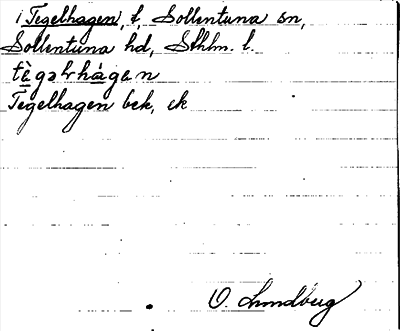 Tegelhagen, t, Sollentuna sn,
Sollentuna hd, Sthlm. l.
tègəlhágen
Tegelhagen bek, ek
O. Lundberg